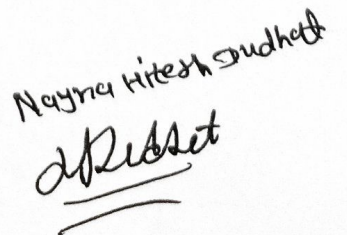 Nayna Hitesh Dudhat